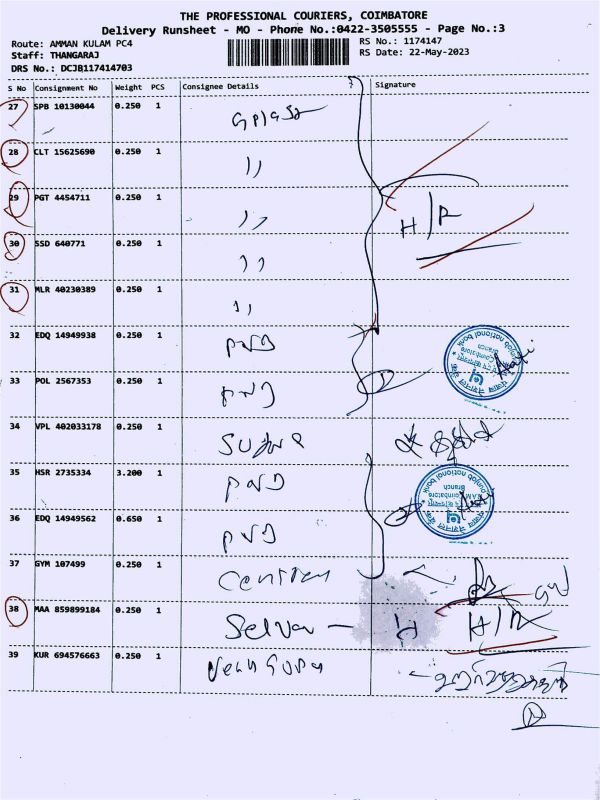 THE PROFESSIONAL COURIERS, COIMBATORE
Delivery Runsheet - MO - Phone No.:0422-3505555 - Page No.:3
Route: AMMAN KULAM PC4
RS No.: 1174147
Staff: THANGARAJ
RS Date: 22-May-2023
DRS No.: DCJB117414703
S No Consignment No Weight PCS Consignee Details Signature
27 SPB 10130044 0.250 1
28 CLT 15625690 0.250 1 ,,
29 PGT 4454711 0.250 1 ,,
H/R
30 SSD 640771 0.250 1 ,,
31 MLR 40230389 0.250 1 ,,
32 EDQ 14949938 0.250 1 PNB
punjab national bank
Coimbatore
Branch
33 POL 2567353 0.250 1 PNB
34 VPL 402033178 0.250 1
35 HSR 2735334 3.200 1 PNB
punjab national bank
Coimbatore
Branch
36 EDQ 14949562 0.650 1 PNB
37 GYM 107499 0.250 1
38 MAA 859899184 0.250 1 Selva - H/R
39 KUR 694576663 0.250 1